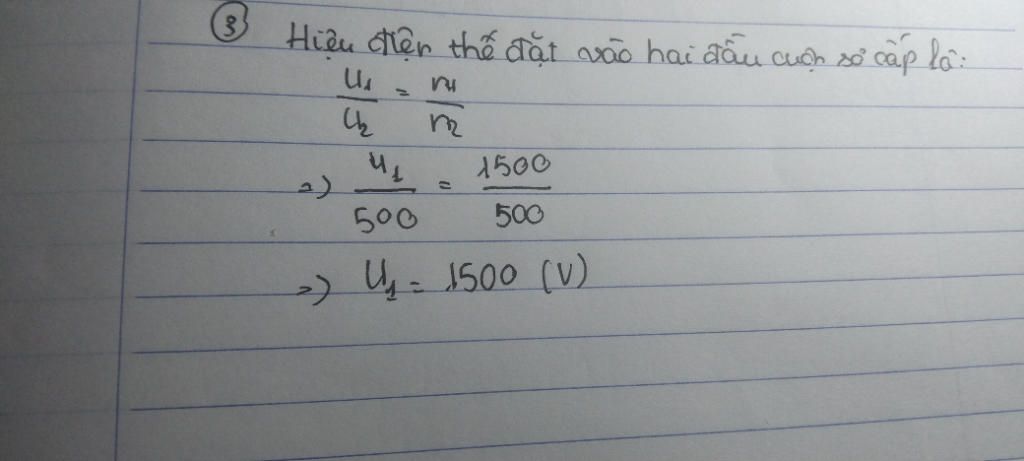 ③ Hiệu điện thế đặt vào hai đầu cuộn sơ cấp là:
U1/U2 = n1/n2
=> U1/500 = 1500/500
=> U1 = 1500 (V)